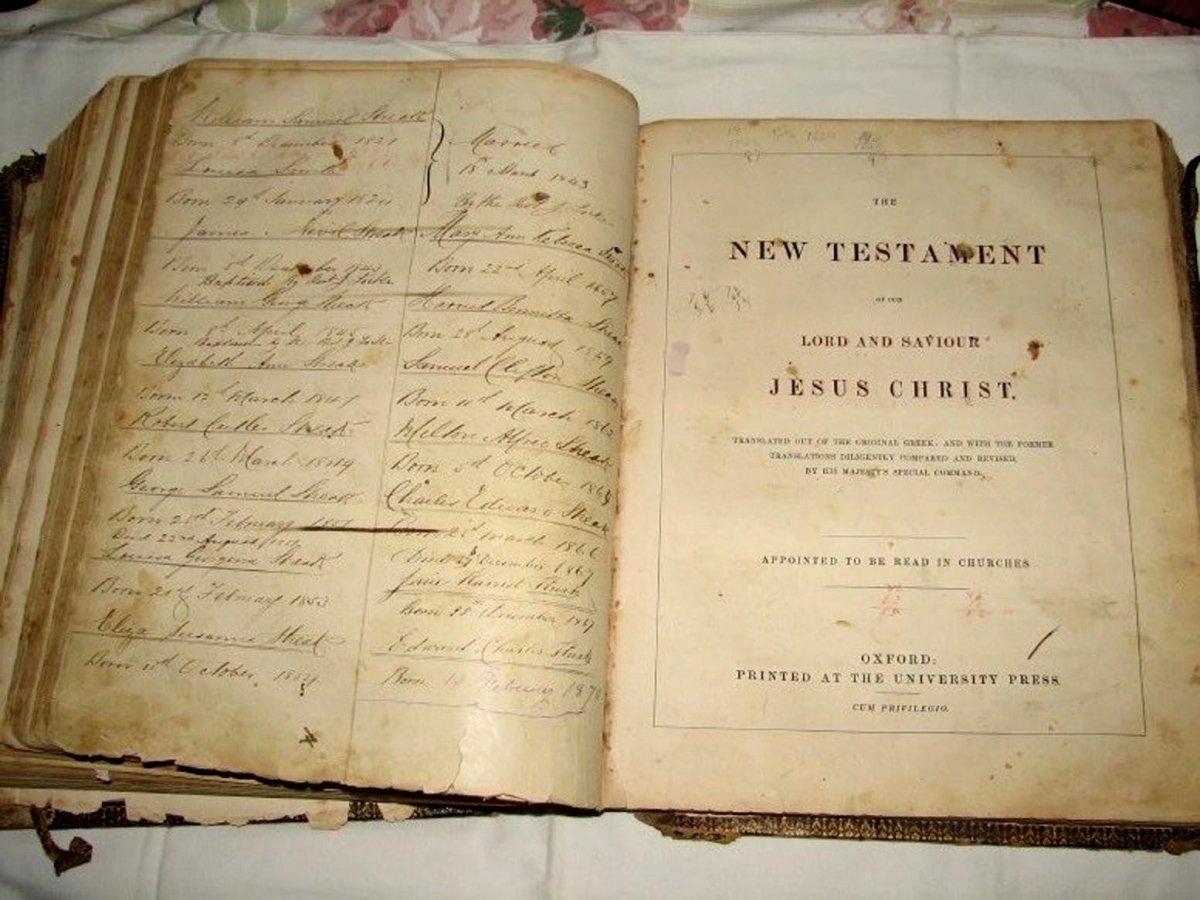 William Samuel Sheak
Born 8th December 1821
Louisa Smith
Born 29th January 1824
James Sheak
Born December
Baptised by
William Sheak
Born 8th April 1845
Elizabeth Ann Sheak
Born 12th March 1847
Robert Cutler Sheak
Born 26th March 1849
George Samuel Sheak
Born 28th February 1851
Died 22nd August
Louisa Georgena Sheak
Born 21st February 1853
Eliza Susanna Sheak
Born 10th October 1854
Married
15 March 1843
By the Rev J
Mary Ann Rebecca
Born 22nd April 1857
Harriet
Born 28th August 1859
Samuel Clifton
Born 11th March
Milton Alfred Sheak
Born 5th October
Charles Edward Sheak
March 1866
Died December 1867
Harriet
Born December 1867
Edward Charles
Born 18 February 1870
THE
NEW TESTAMENT
OF OUR
LORD AND SAVIOUR
JESUS CHRIST.
TRANSLATED OUT OF THE ORIGINAL GREEK: AND WITH THE FORMER
TRANSLATIONS DILIGENTLY COMPARED AND REVISED,
BY HIS MAJESTY'S SPECIAL COMMAND.
APPOINTED TO BE READ IN CHURCHES
OXFORD:
PRINTED AT THE UNIVERSITY PRESS.
CUM PRIVILEGIO.